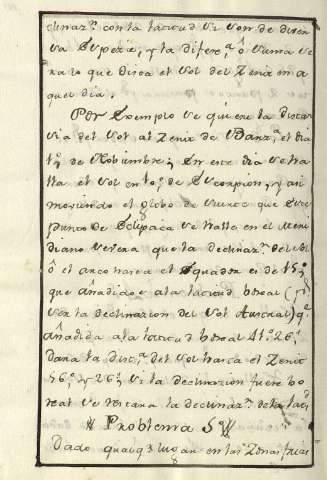 clinaz.n con la lacitud si son de diser
sa Especie, y la difer.a ô suma se
ra lo que dista el Sol del Zenit en a
quel dia.
Por Exemplo se quiere la distan
cia del Sol, al Zenit de el dia
de Nobiembre, En este dia se ha
lla el Sol en de Escorpion, y asi
moviendo el globo de suerte que Este
punto de Eclipica se halle en el Meri
diano se sera que la declinaz.n del Sol
ô el arco hasta el Equador es de 15,,
que añadido a la lacitud boreal
ser la declinazion del Sol Austral) q.e
añadida a la lacitud boreal 41.° 26,,
dara la dist.a del Sol hasta el Zenit
56.° y 26,, si la declinazion fuere bo
real se restara la declinaz.n de la
Problema 5
Dado qualq.a lugar en las Zonas frias